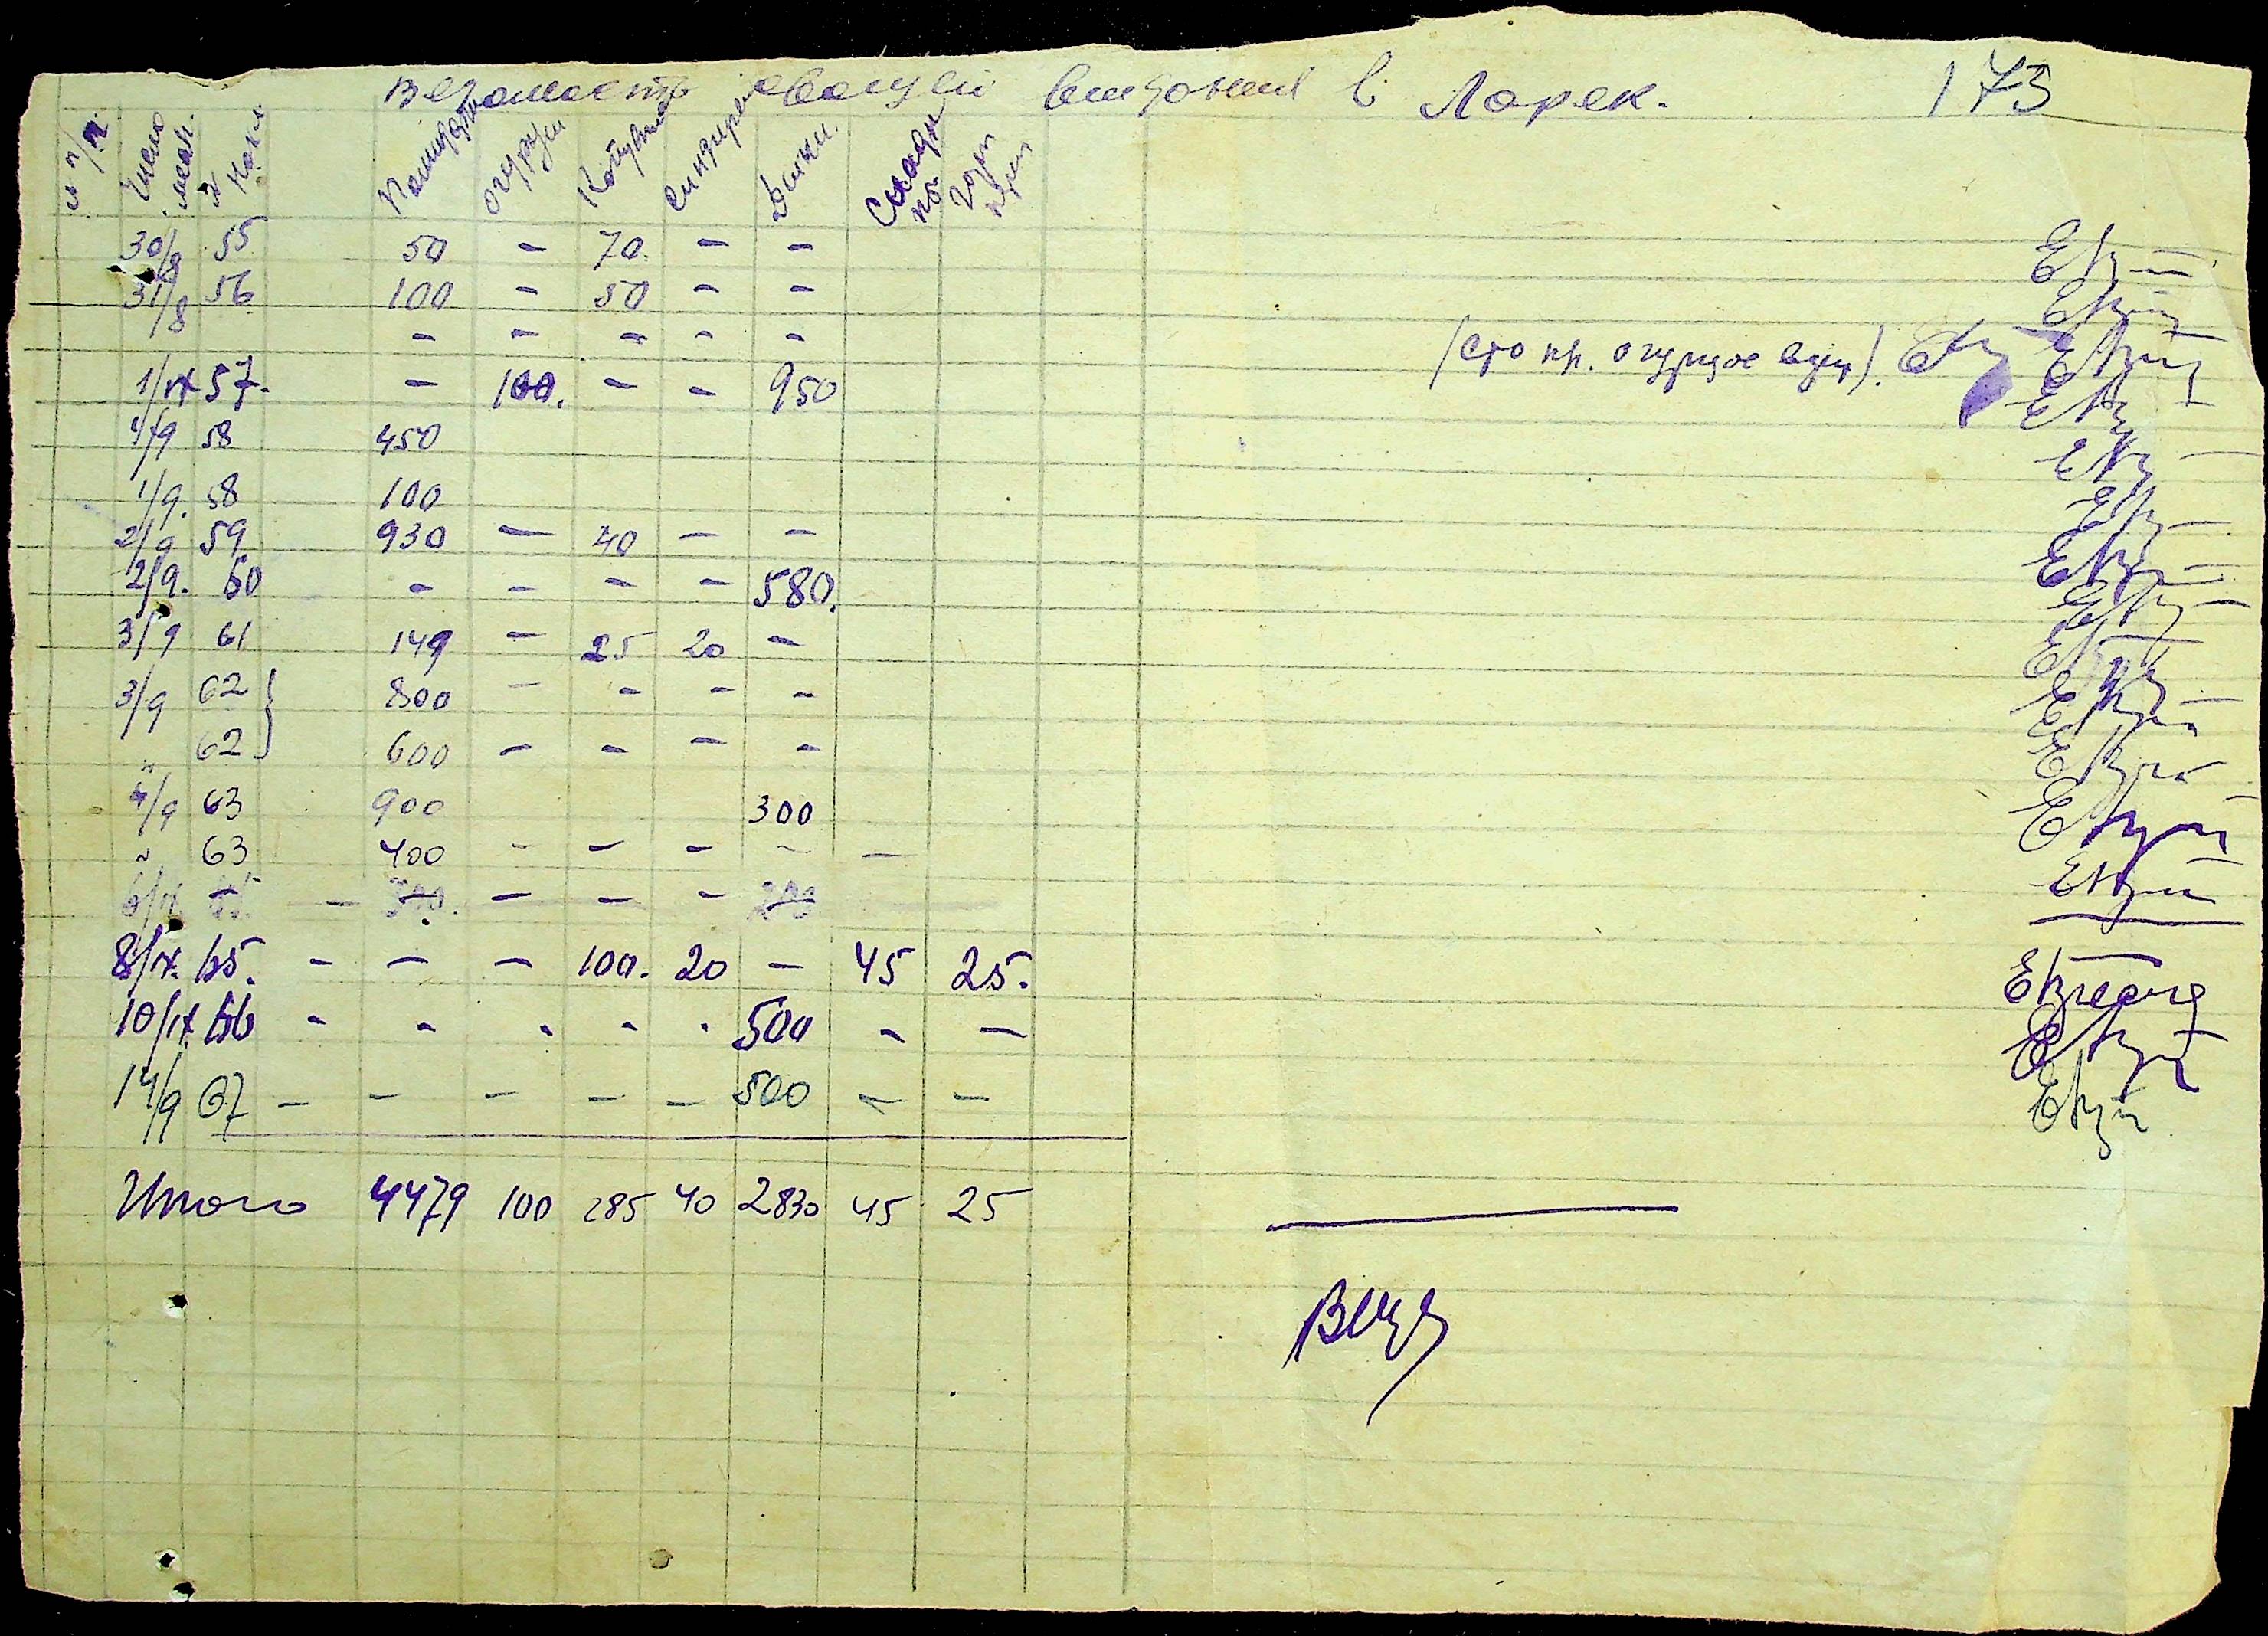 Ведомость овощей выдоный в Ларек. 173
№ п/п. Число мес. № Накл Помидоры огурцы Капуста синдеры Дыни.
30/8 55 50 - 70. - -
31/8 56 100 - 50 - -
- - - - -
1/IX 57. - 100. - - 950 (сто кг. огурцов один).
1/9 58 450
1/9. 58 100
2/9 59 930 - 40 - -
2/9. 60 - - - - 580.
3/9 61 149 - 25 20 -
3/9 62 800 - - - -
" 62 600 - - - -
4/9 63 900 300
" 63 400 - - - - -
8/IX. 65. - - - 100. 20 - 45 25.
10/IX 66 - - - - - 500 - -
14/9 67 - - - - - 500 - -
Итого 4479 100 285 40 2830 45 25